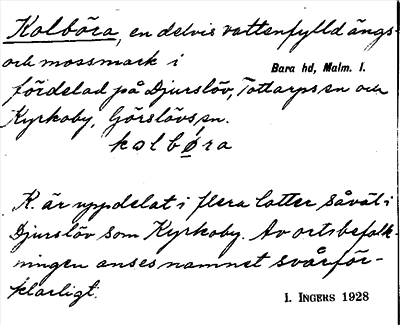 Kolböra, en delvis vattenfylld ängs-
och mossmark i
Bara hd, Malm. l.
fördelad på Djurslöv, Tottarps sn och
Kyrkoby, Görslövs sn.
kolbøra
K. är uppdelat i flera lotter såväl i
Djurslöv som Kyrkoby. Av ortsbefolk-
ningen anses namnet svårför-
klarligt.
I. INGERS 1928